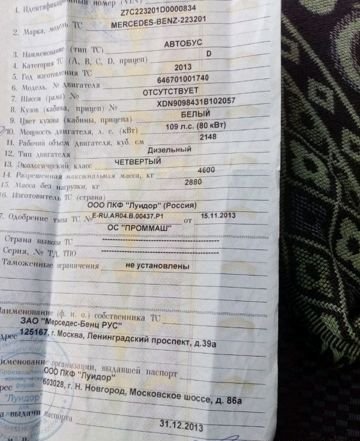 1. Идентификационный номер (VIN) Z7C223201D0000834
2. Марка, модель ТС MERCEDES-BENZ-223201
3. Наименование (тип ТС) АВТОБУС
4. Категория ТС (A, B, C, D, прицеп) D
5. Год изготовления ТС 2013
6. Модель, № двигателя 646701001740
7. Шасси (рама) № ОТСУТСТВУЕТ
8. Кузов (кабина, прицеп) № XDN9098431B102057
9. Цвет кузова (кабины, прицепа) БЕЛЫЙ
10. Мощность двигателя, л. с. (кВт) 109 л.с. (80 кВт)
11. Рабочий объем двигателя, куб. см 2148
12. Тип двигателя Дизельный
13. Экологический класс ЧЕТВЕРТЫЙ
14. Разрешенная максимальная масса, кг 4600
15. Масса без нагрузки, кг 2880
16. Изготовитель ТС (страна)
ООО ПКФ "Луидор" (Россия)
17. Одобрение типа ТС № E-RU.AR04.B.00437.P1 от 15.11.2013
ОС "ПРОММАШ"
Страна вывоза ТС
Серия, № ТД, ТПО
Таможенные ограничения не установлены
Наименование (ф. и. о.) собственника ТС
ЗАО "Мерседес-Бенц РУС"
Адрес 125167, г. Москва, Ленинградский проспект, д.39а
Наименование организации, выдавшей паспорт
ООО ПКФ "Луидор"
603028, г. Н. Новгород, Московское шоссе, д. 86а
"Луидор"
Дата выдачи паспорта 31.12.2013